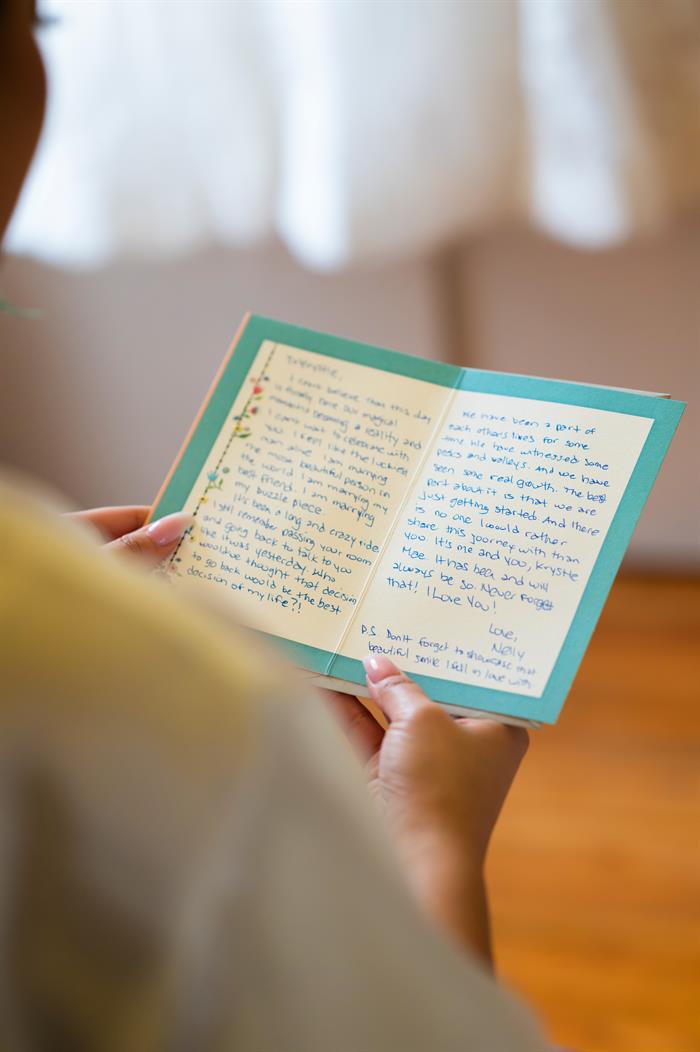 I can't believe that this day
is finally here. Our magical
moment is becoming a reality and
I can't wait to celebrate with
you. I feel like the luckiest
man alive. I am marrying
the most beautiful person in
the world. I am marrying my
best friend. I am marrying
my puzzle piece.
It's been a long and crazy ride.
I still remember passing your room
and going back to talk to you
like it was yesterday. Who
would've thought that decision
to go back would be the best
decision of my life?!
We have been a part of
each others lives for some
time. We have witnessed some
peaks and valleys. And we have
seen some real growth. The best
part about it is that we are
just getting started. And there
is no one I would rather
share this journey with than
you. It's me and you, Krystle
Mae. It has been and will
always be so. Never forget
that! I Love You!
Love,
Nelly
P.S. Don't forget to showcase that
beautiful smile I fell in love with